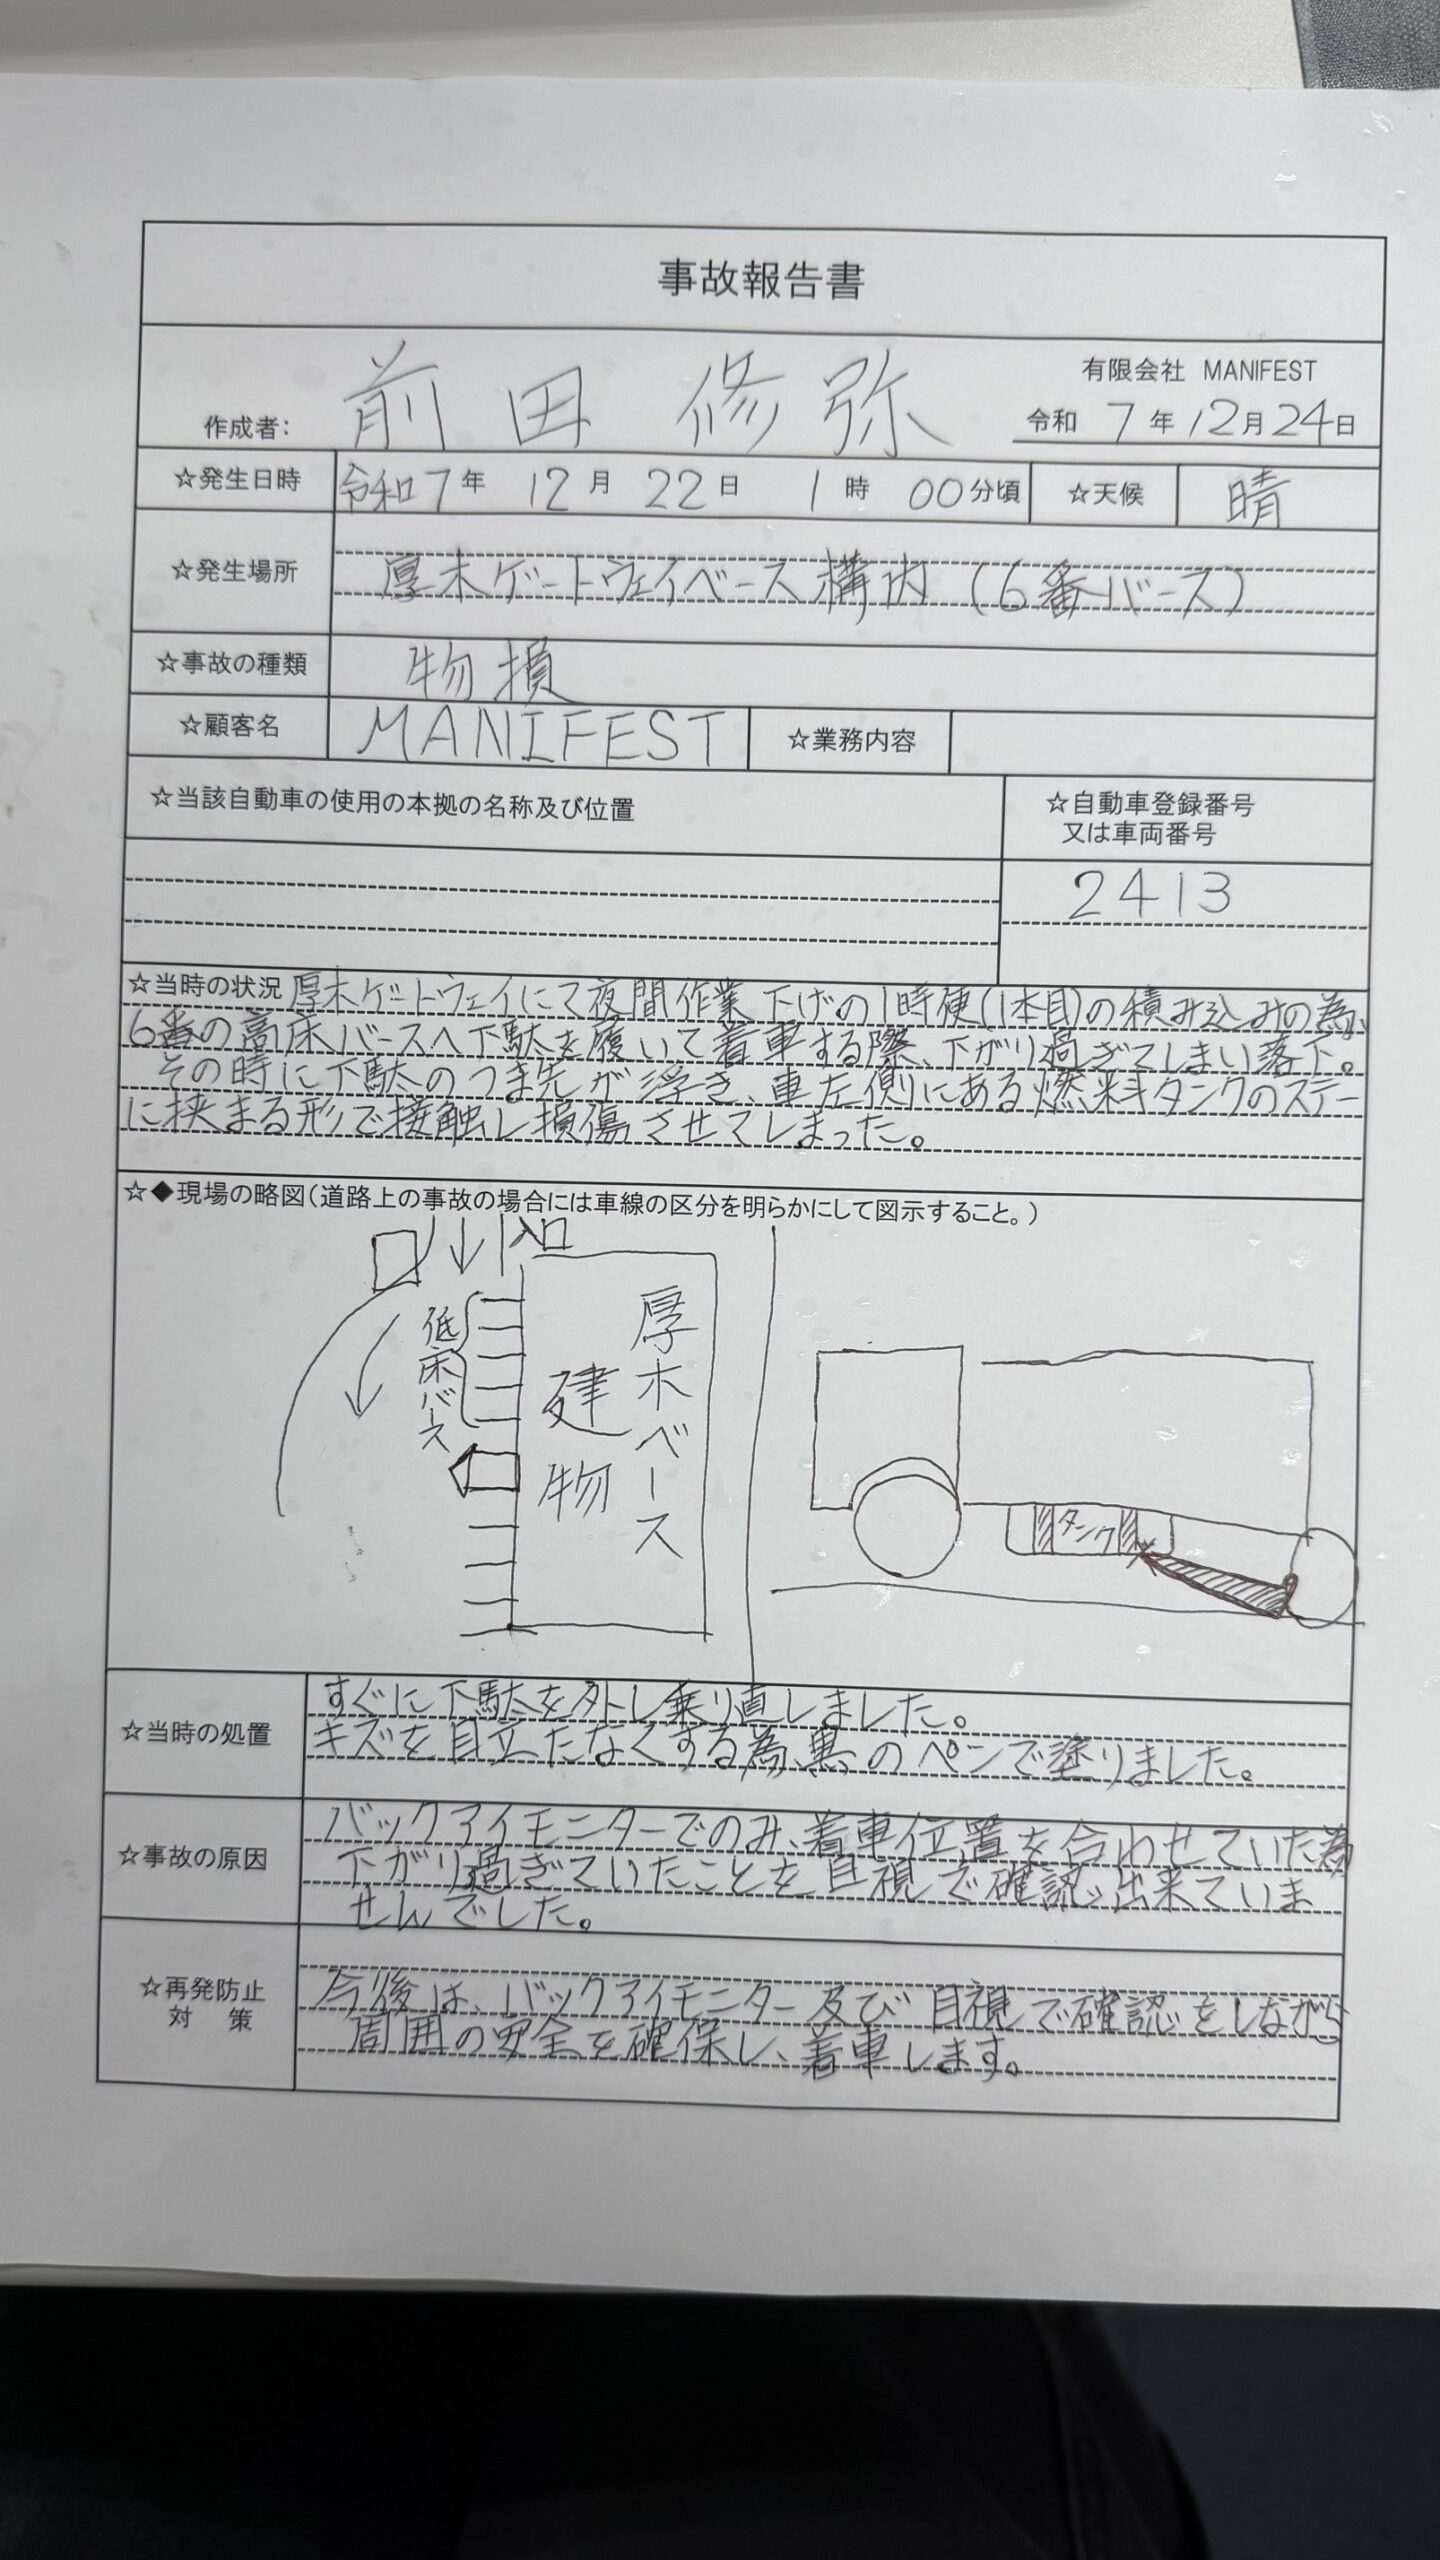 事故報告書
有限会社 MANIFEST
作成者: 前田 修弥 令和 7 年 12月 24日
☆発生日時 令和 7 年 12 月 22 日 1 時 00 分頃 ☆天候 晴
☆発生場所 厚木ゲートウェイベース構内 (6番バース)
☆事故の種類 物損
☆顧客名 MANIFEST ☆業務内容
☆当該自動車の使用の本拠の名称及び位置 ☆自動車登録番号
又は車両番号
2413
☆当時の状況 厚木ゲートウェイにて夜間作業 下げの1時便(1本目)の積み込みの為、
6番の高床バースへ下駄を履いて着車する際、下がり過ぎてしまい落下。
その時に下駄のつま先が浮き、車左側にある燃料タンクのステー
に挟まる形で接触し損傷させてしまった。
☆◆現場の略図(道路上の事故の場合には車線の区分を明らかにして図示すること。)
入口
低床バース
厚木ベース
建物
タンク
☆当時の処置 すぐに下駄を外し乗り直しました。
キズを目立たなくする為、黒のペンで塗りました。
☆事故の原因 バックアイモニターでのみ、着車位置を合わせていた為
下がり過ぎていたことを目視で確認出来ていま
せんでした。
☆再発防止
対 策
今後は、バックアイモニター及び目視で確認をしながら
周囲の安全を確保し、着車します。